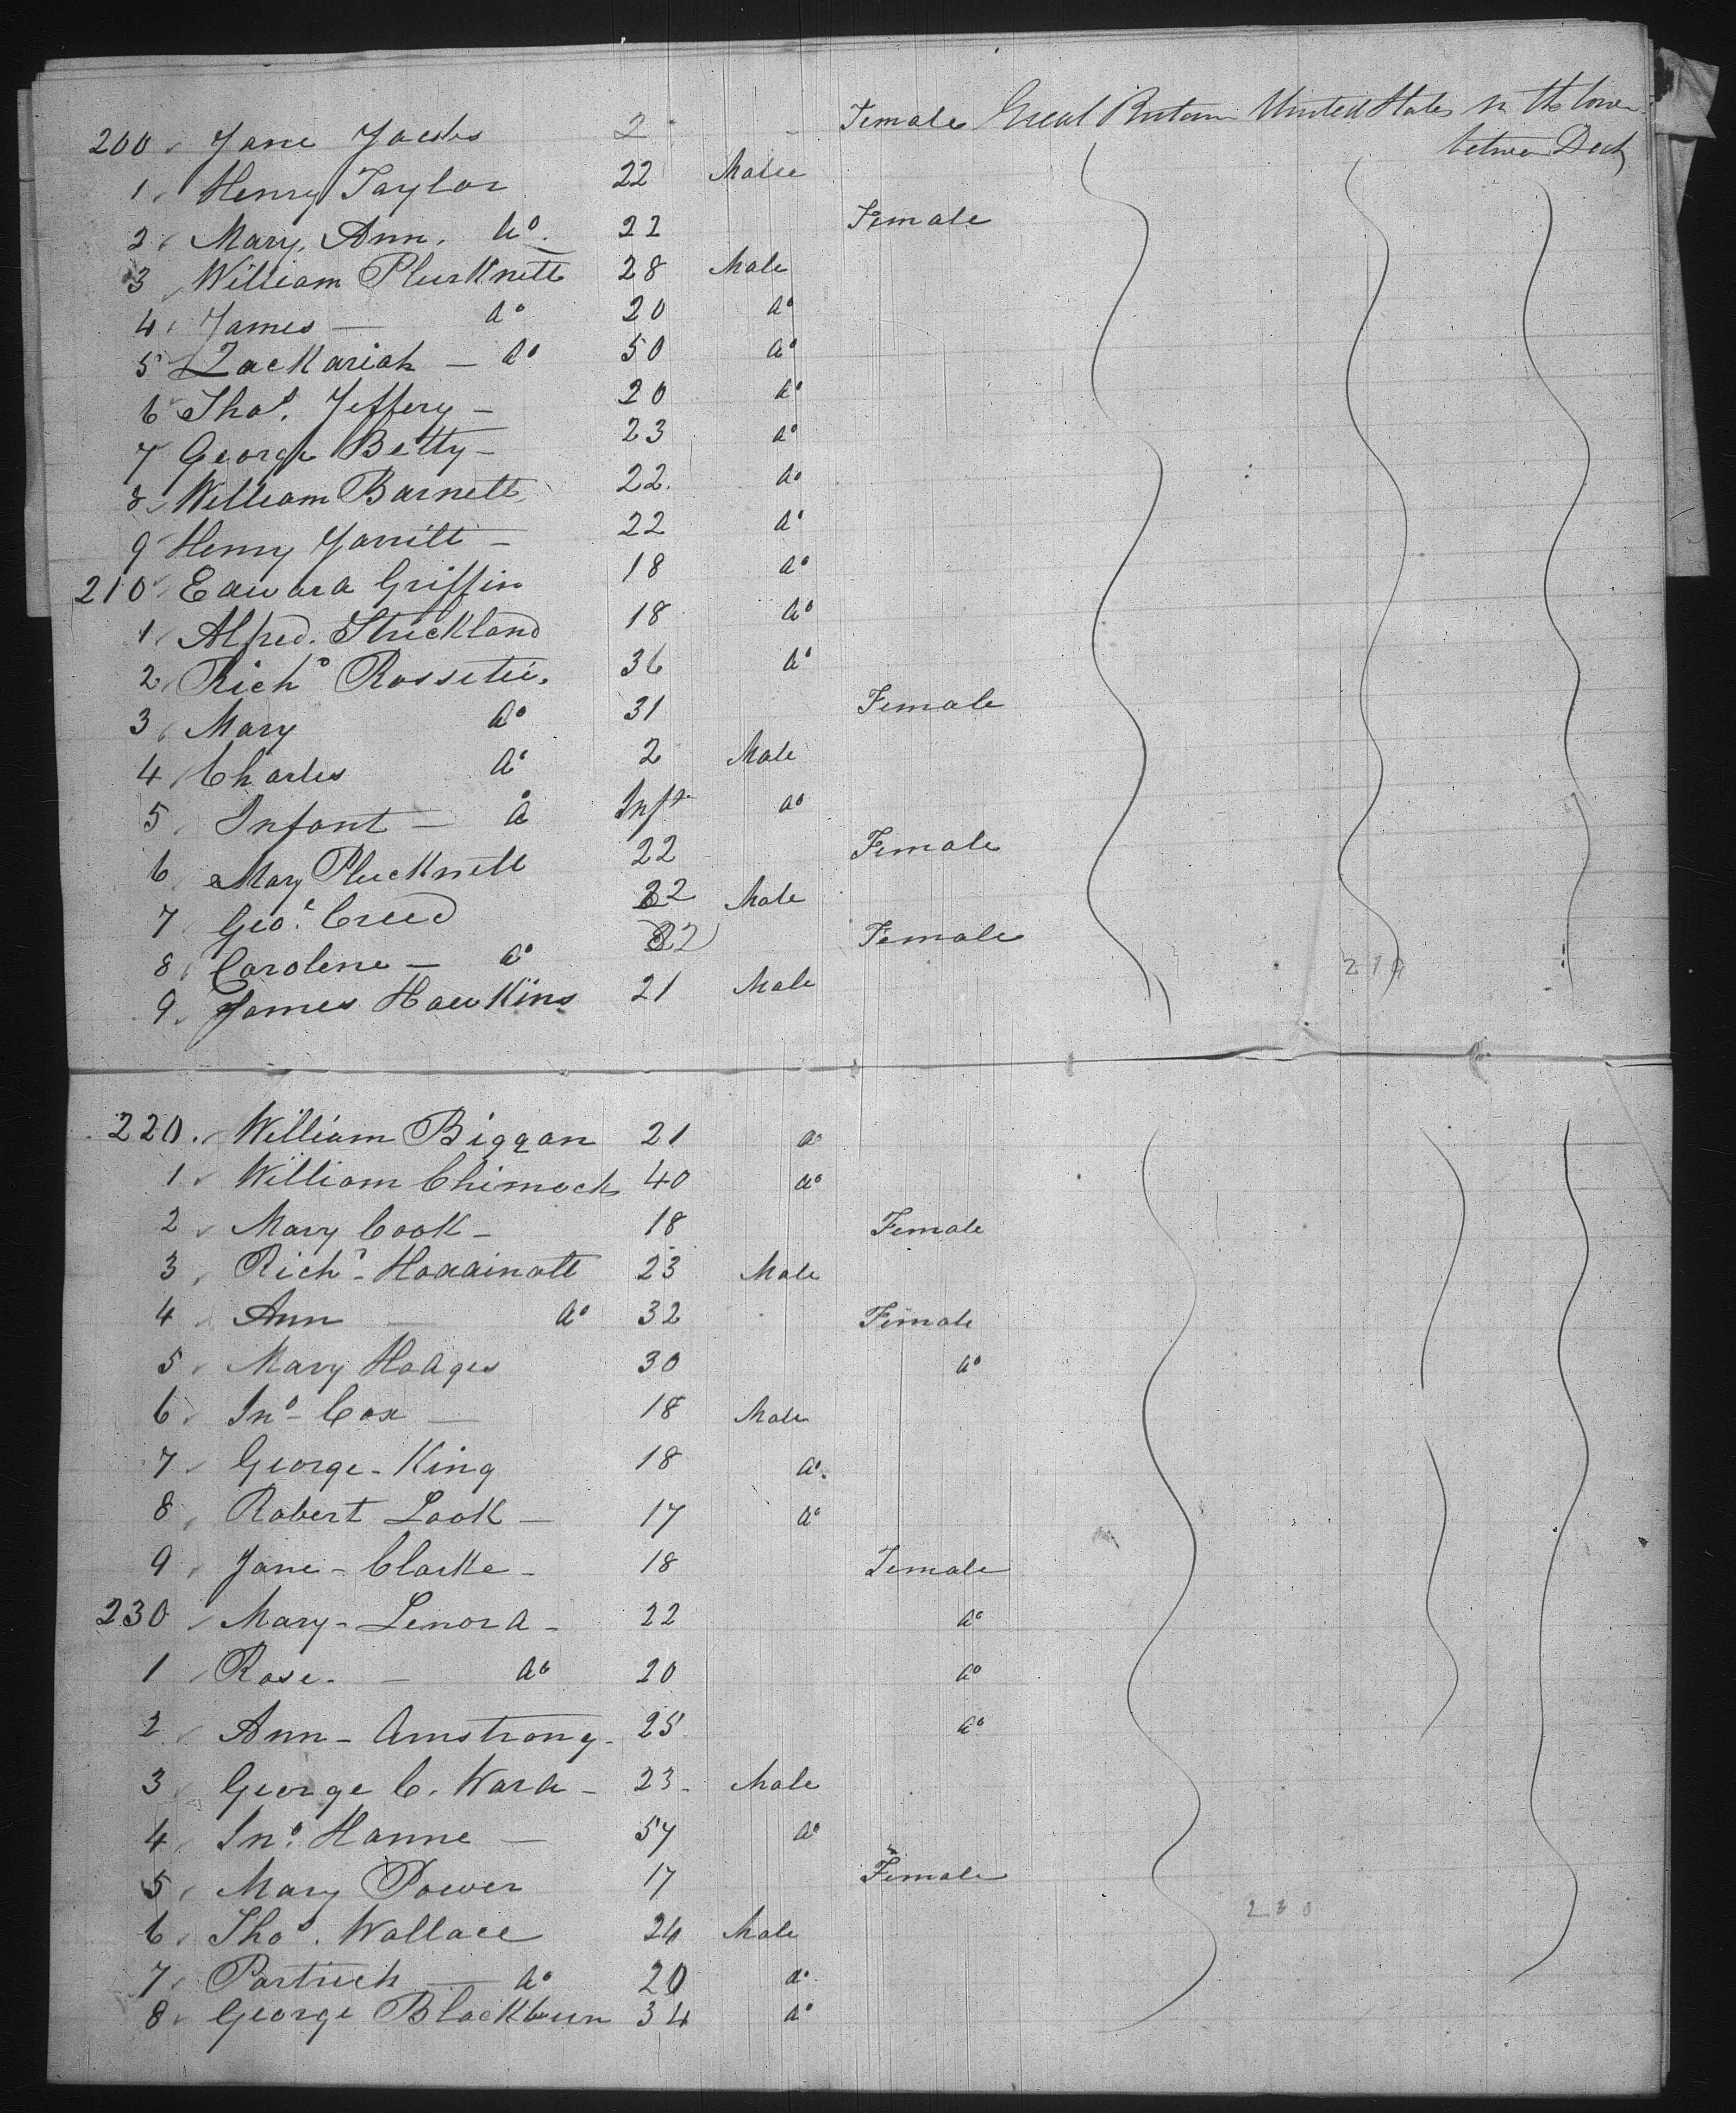 200 Jane Jacobs 2 Female Great Britain United States In the lower
between Deck
1 Henry Taylor 22 Male
2 Mary Ann. do. 22 Female
3 William Plucknett 28 Male
4 James — do 20 do
5 Zackariah — do 50 do
6 Thos. Jeffery — 20 do
7 George Betty — 23 do
8 William Barnett 22. do
9 Henry Jarritt — 22 do
210 Edward Griffin 18 do
1 Alfred. Strickland 18 do
2 Richd 36 do
3 Mary do 31 Female
4 Charles do 2 Male
5 Infant — do Inft do
6 Mary Plucknett 22 Female
7 Geo. Creed 32 Male
8 Caroline — do 32 Female
9 James Hawkins 21 Male
219
220. William Biggan 21 do
1 William Chimock 40 do
2 Mary Cook — 18 Female
3 Richd Hoddinott 23 Male
4 Ann — do 32 Female
5 Mary Hodges 30 do
6 Jno — Cox — 18 Male
7 George — King 18 do.
8 Robert Look — 17 do
9 Jane — Clarke — 18 Female
230 Mary — Lenord — 22 do
1 Rose. — do 20 do
2 Ann — Amstrong — 25 do
3 George C. Ward — 23 — Male
4 Jno. Hanne — 57 do
5 Mary Power 17 Female
230
6 Thos. Wallace 24 Male
7 Partrick — do 20 do
8 George Blackburn 34 do